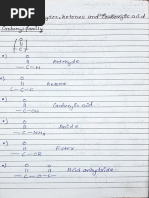 Aldehydes, ketones and Carboxylic acid
Carbonyl family
O
— C —
O
— C — H
Aldehyde
O
— C —
Ketone
O
— C — OH
Carboxylic acid
O
— C —
Amide
O
— C — OR
Ester
O O
— C — O — C —
Acid anhydride